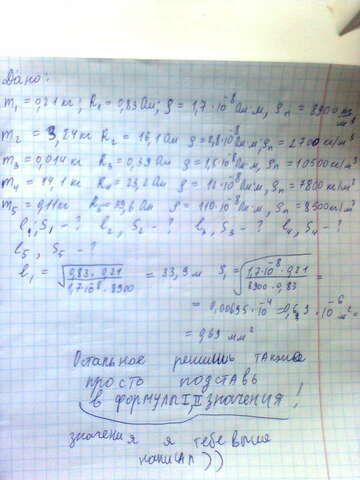 Дано:
m₁ = 0,21 кг; R₁ = 0,83 Ом; ρ = 1,7·10⁻⁸ Ом·м, ρп = 8900 кг/м³
m₂ = 3,24 кг R₂ = 16,1 Ом ρ = 2,8·10⁻⁸ Ом·м, ρп = 2700 кг/м³
m₃ = 0,014 кг R₃ = 0,39 Ом ρ = 1,6·10⁻⁸ Ом·м, ρп = 10500 кг/м³
m₄ = 14,1 кг R₄ = 23,2 Ом ρ = 12·10⁻⁸ Ом·м, ρп = 7800 кг/м³
m₅ = 0,11 кг R₅ = 29,6 Ом ρ = 110·10⁻⁸ Ом·м, ρп = 8500 кг/м³
l₁, S₁ - ? l₂, S₂ - ? l₃, S₃ - ? l₄, S₄ - ?
l₅, S₅ - ?
l₁ = √(0,83·0,21 / 1,7·10⁻⁸·8900) = 33,9 м S₁ = √(1,7·10⁻⁸·0,21 / 8900·0,83) =
= 0,00695·10⁻⁴ = 0,69·10⁻⁶ м² =
= 0,69 мм²
Остальное решишь также
просто подставь
в формулы I, II значения!
значения я тебе выше
написал))